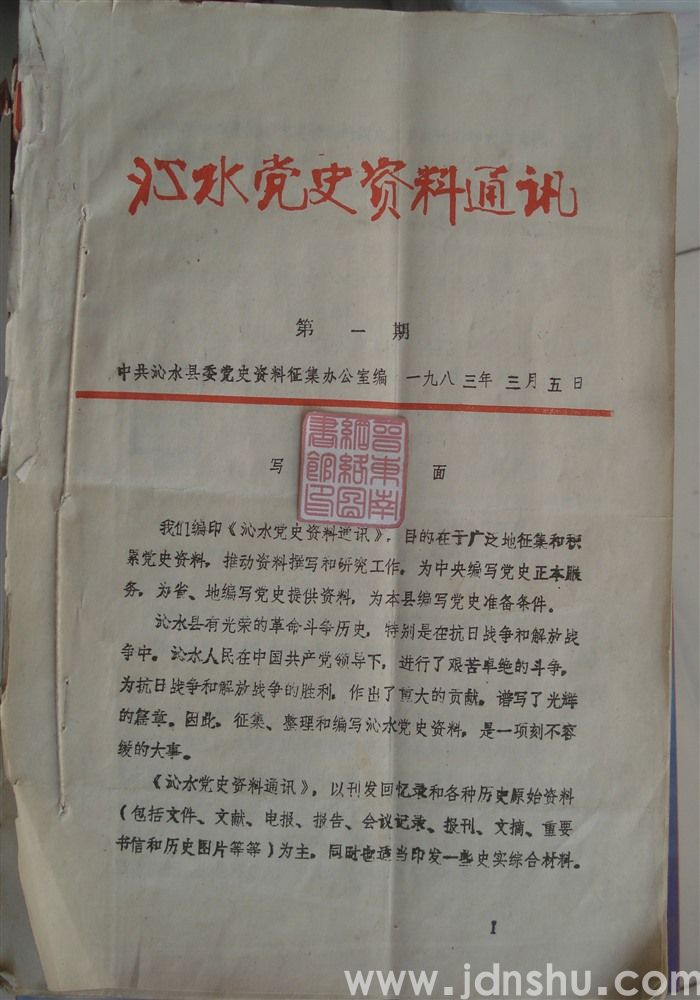 沁水党史资料通讯
第一期
中共沁水县委党史资料征集办公室编 一九八三年三月五日
晋东南
网络图
书馆印
写 面
我们编印《沁水党史资料通讯》，目的在于广泛地征集和积
累党史资料，推动资料撰写和研究工作。为中央编写党史正本服
务，为省、地编写党史提供资料，为本县编写党史准备条件。
沁水县有光荣的革命斗争历史，特别是在抗日战争和解放战
争中。沁水人民在中国共产党领导下，进行了艰苦卓绝的斗争。
为抗日战争和解放战争的胜利，作出了重大的贡献。谱写了光辉
的篇章。因此，征集、整理和编写沁水党史资料，是一项刻不容
缓的大事。
《沁水党史资料通讯》，以刊发回忆录和各种历史原始资料
（包括文件、文献、电报、报告、会议记录、报刊、文摘、重要
书信和历史图片等等）为主，同时也适当印发一些史实综合材料。
I
www.jdnshu.com